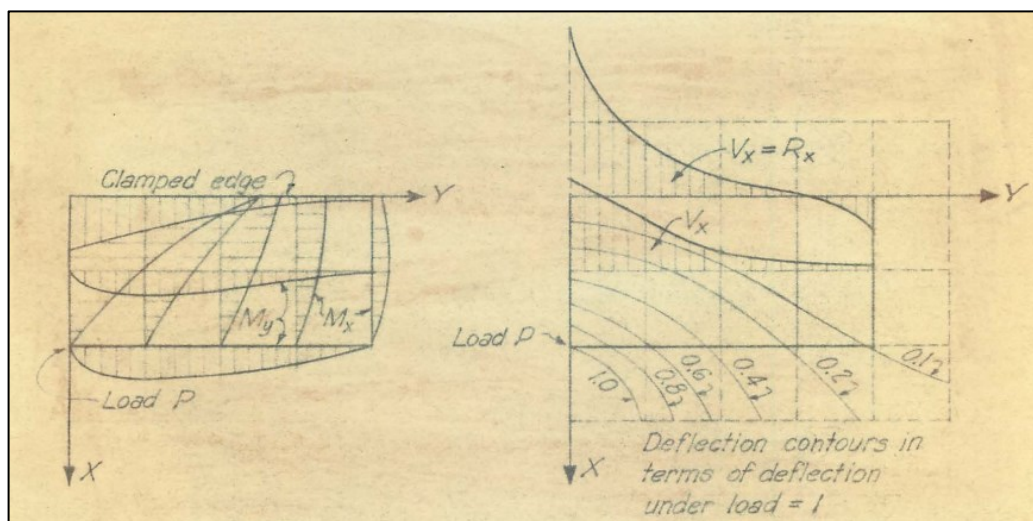 Clamped edge
Y
My
Mx
Load P
X
Vx = Rx
Y
Vx
Load P
1.0
0.8
0.6
0.4
0.2
0.1
X
Deflection contours in
terms of deflection
under load = 1